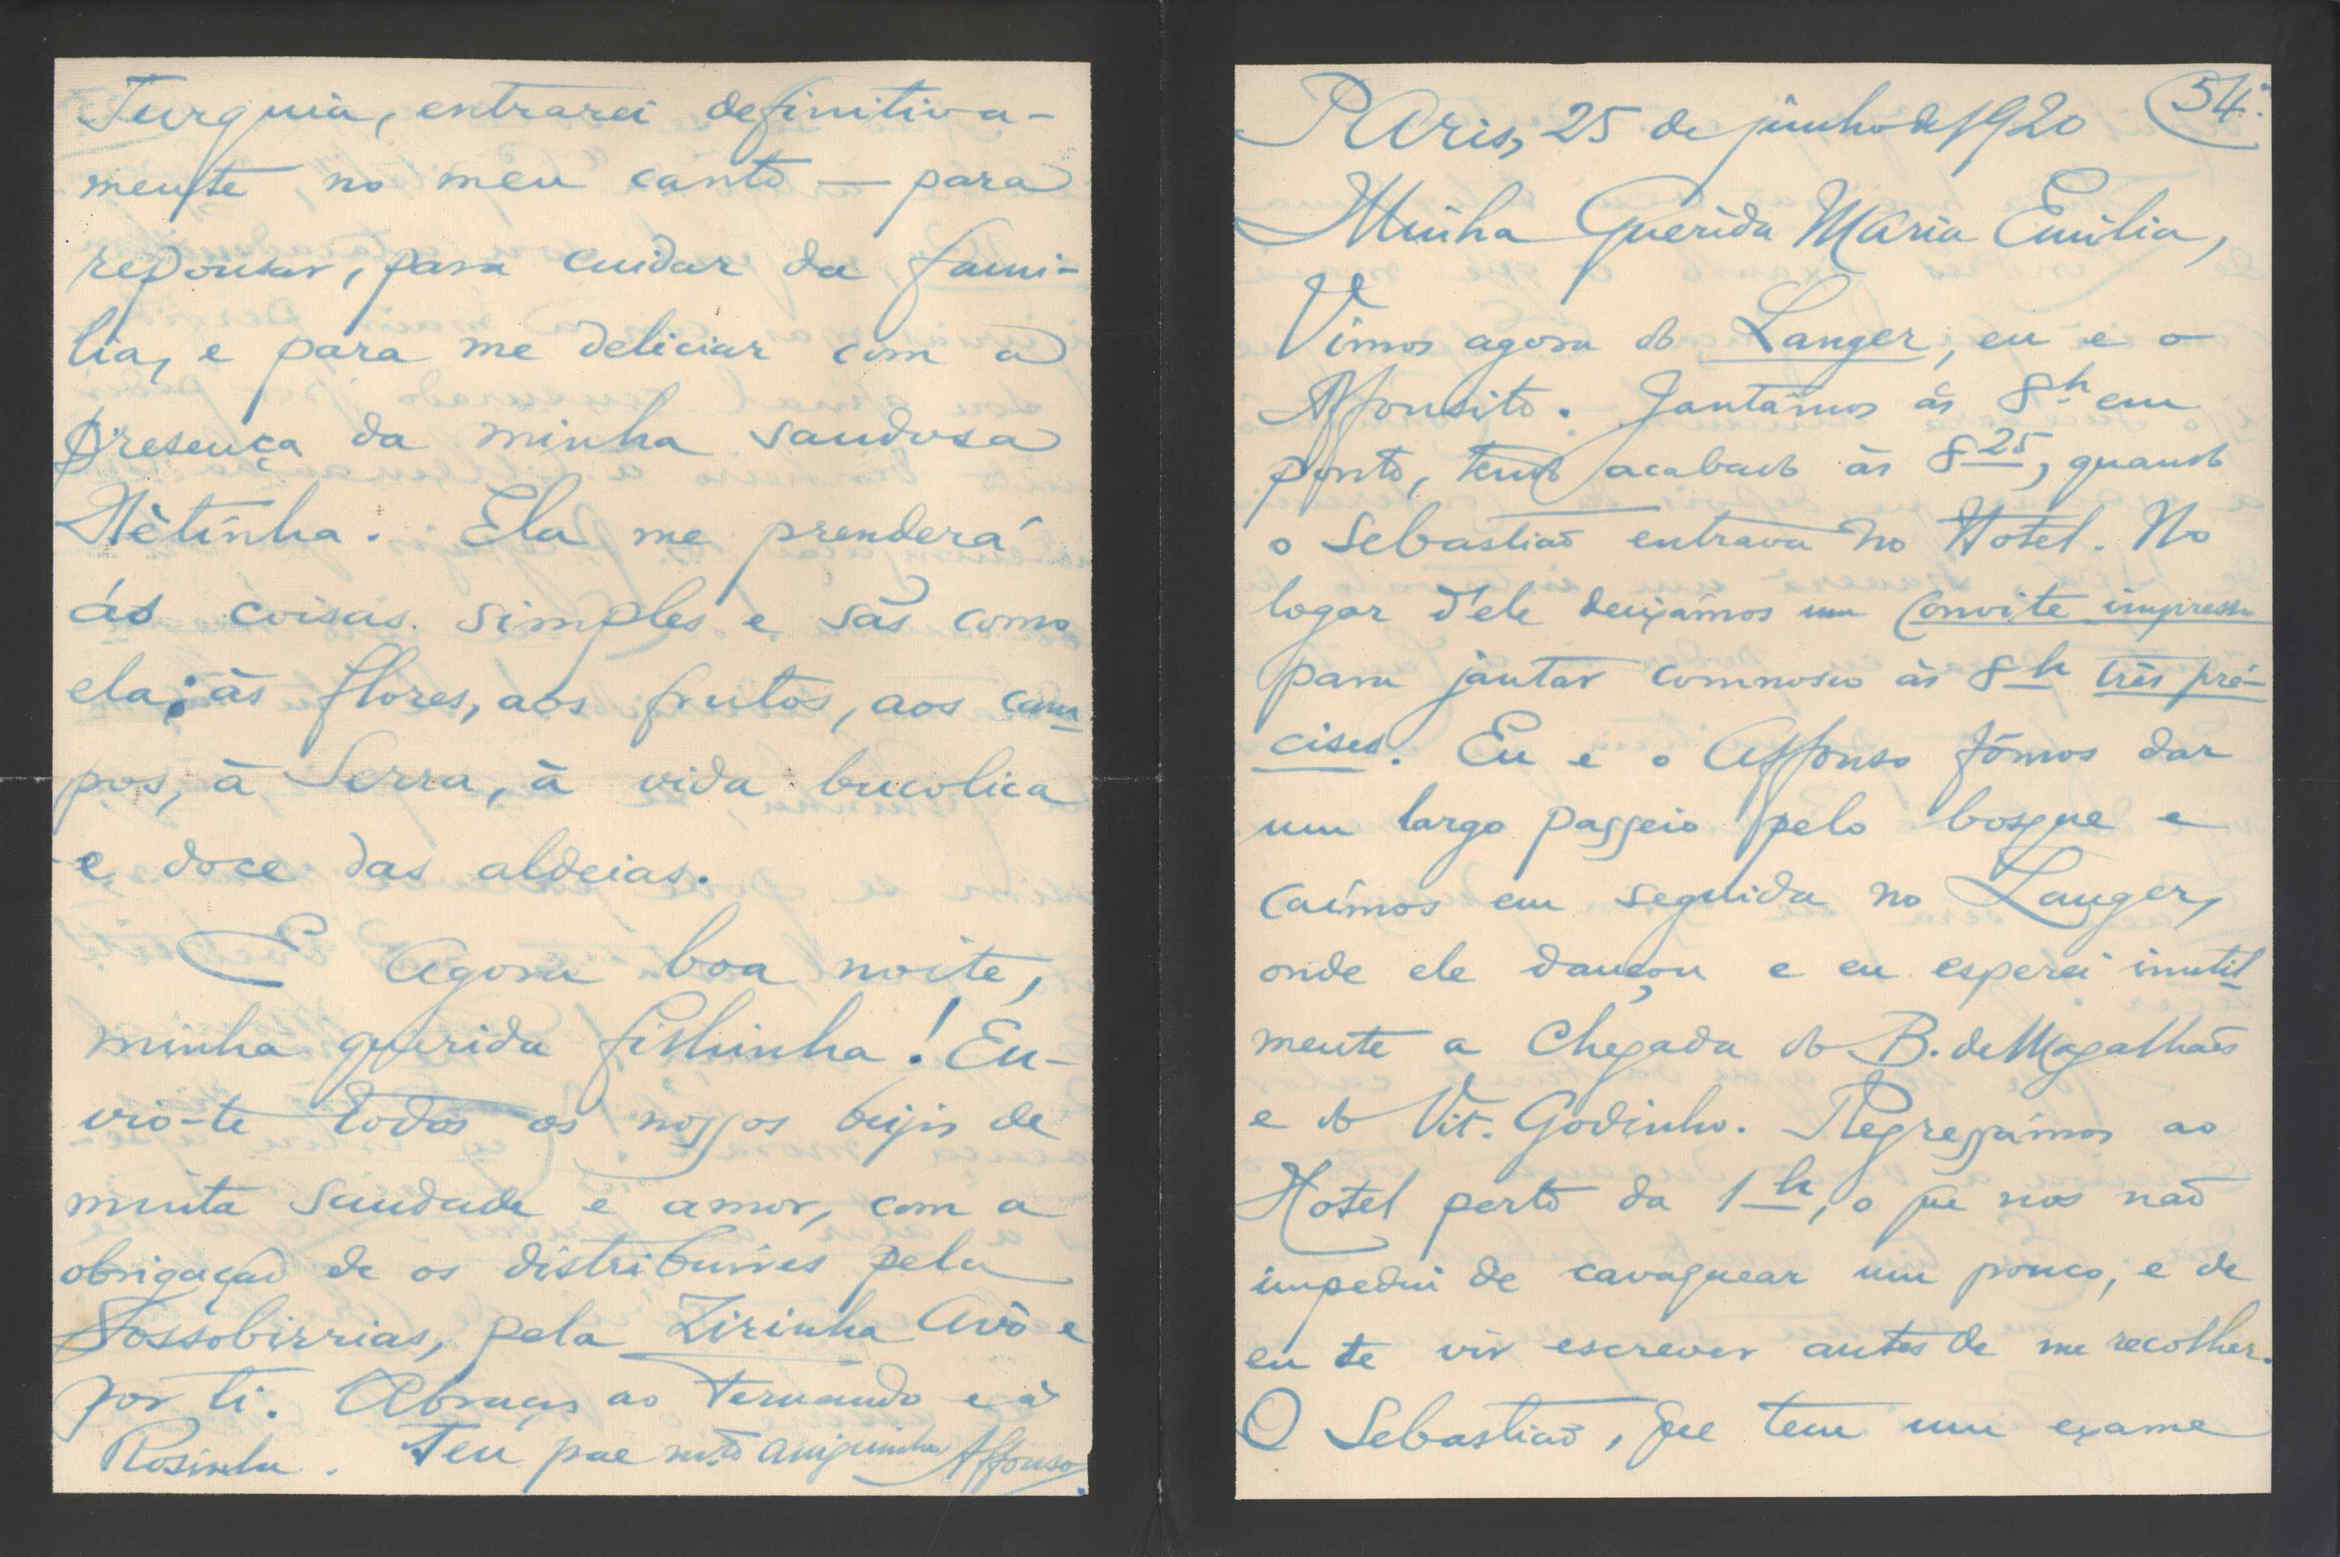 Turquia, entrarei definitiva-
mente no meu canto — para
repousar, para cuidar da fami-
lia, e para me deliciar com a
presença da minha saudosa
Nètinha. Ela me prenderá
ás coisas simples e sãs como
ela; ás flores, aos frutos, aos cam-
pos, à Serra, à vida bucolica
e doce das aldeias.
E agora boa noite,
minha querida filhinha! En-
vio-te todos os nossos beijos de
muita saudade e amor, com a
obrigação de os distribuires pela
Sossobirrias, pela Zirinha Avó e
por ti. Abraços ao Fernando e à
Rosinha. Teu pae mto amiguinho Affonso.
Paris, 25 de junho de 1920
54.º
Minha Querida Maria Emilia,
Vimos agora do Langer, eu e o
Affonsito. Jantámos ás 8h em
ponto, tendo acabado ás 8 25, quando
o Sebastião entrava no Hotel. No
logar d'ele deixámos um convite impresso
para jantar comnosco ás 8h très pré-
cises. Eu e o Affonso fômos dar
um largo passeio pelo bosque e
caímos em seguida no Langer,
onde ele dançou e eu esperei inutil-
mente a chegada do B. de Magalhães
e do Vit. Godinho. Regressámos ao
Hotel perto da 1h, o que nos não
impediu de cavaquear um pouco, e de
eu te vir escrever antes de me recolher.
O Sebastião, que tem um exame